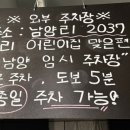 ※ 외부 주차장 ※
소 : 남양리 2037
리 어린이집 맞은편
"남양 임시 주차장"
료 주차. 도보 5분
종일 주차 가능!